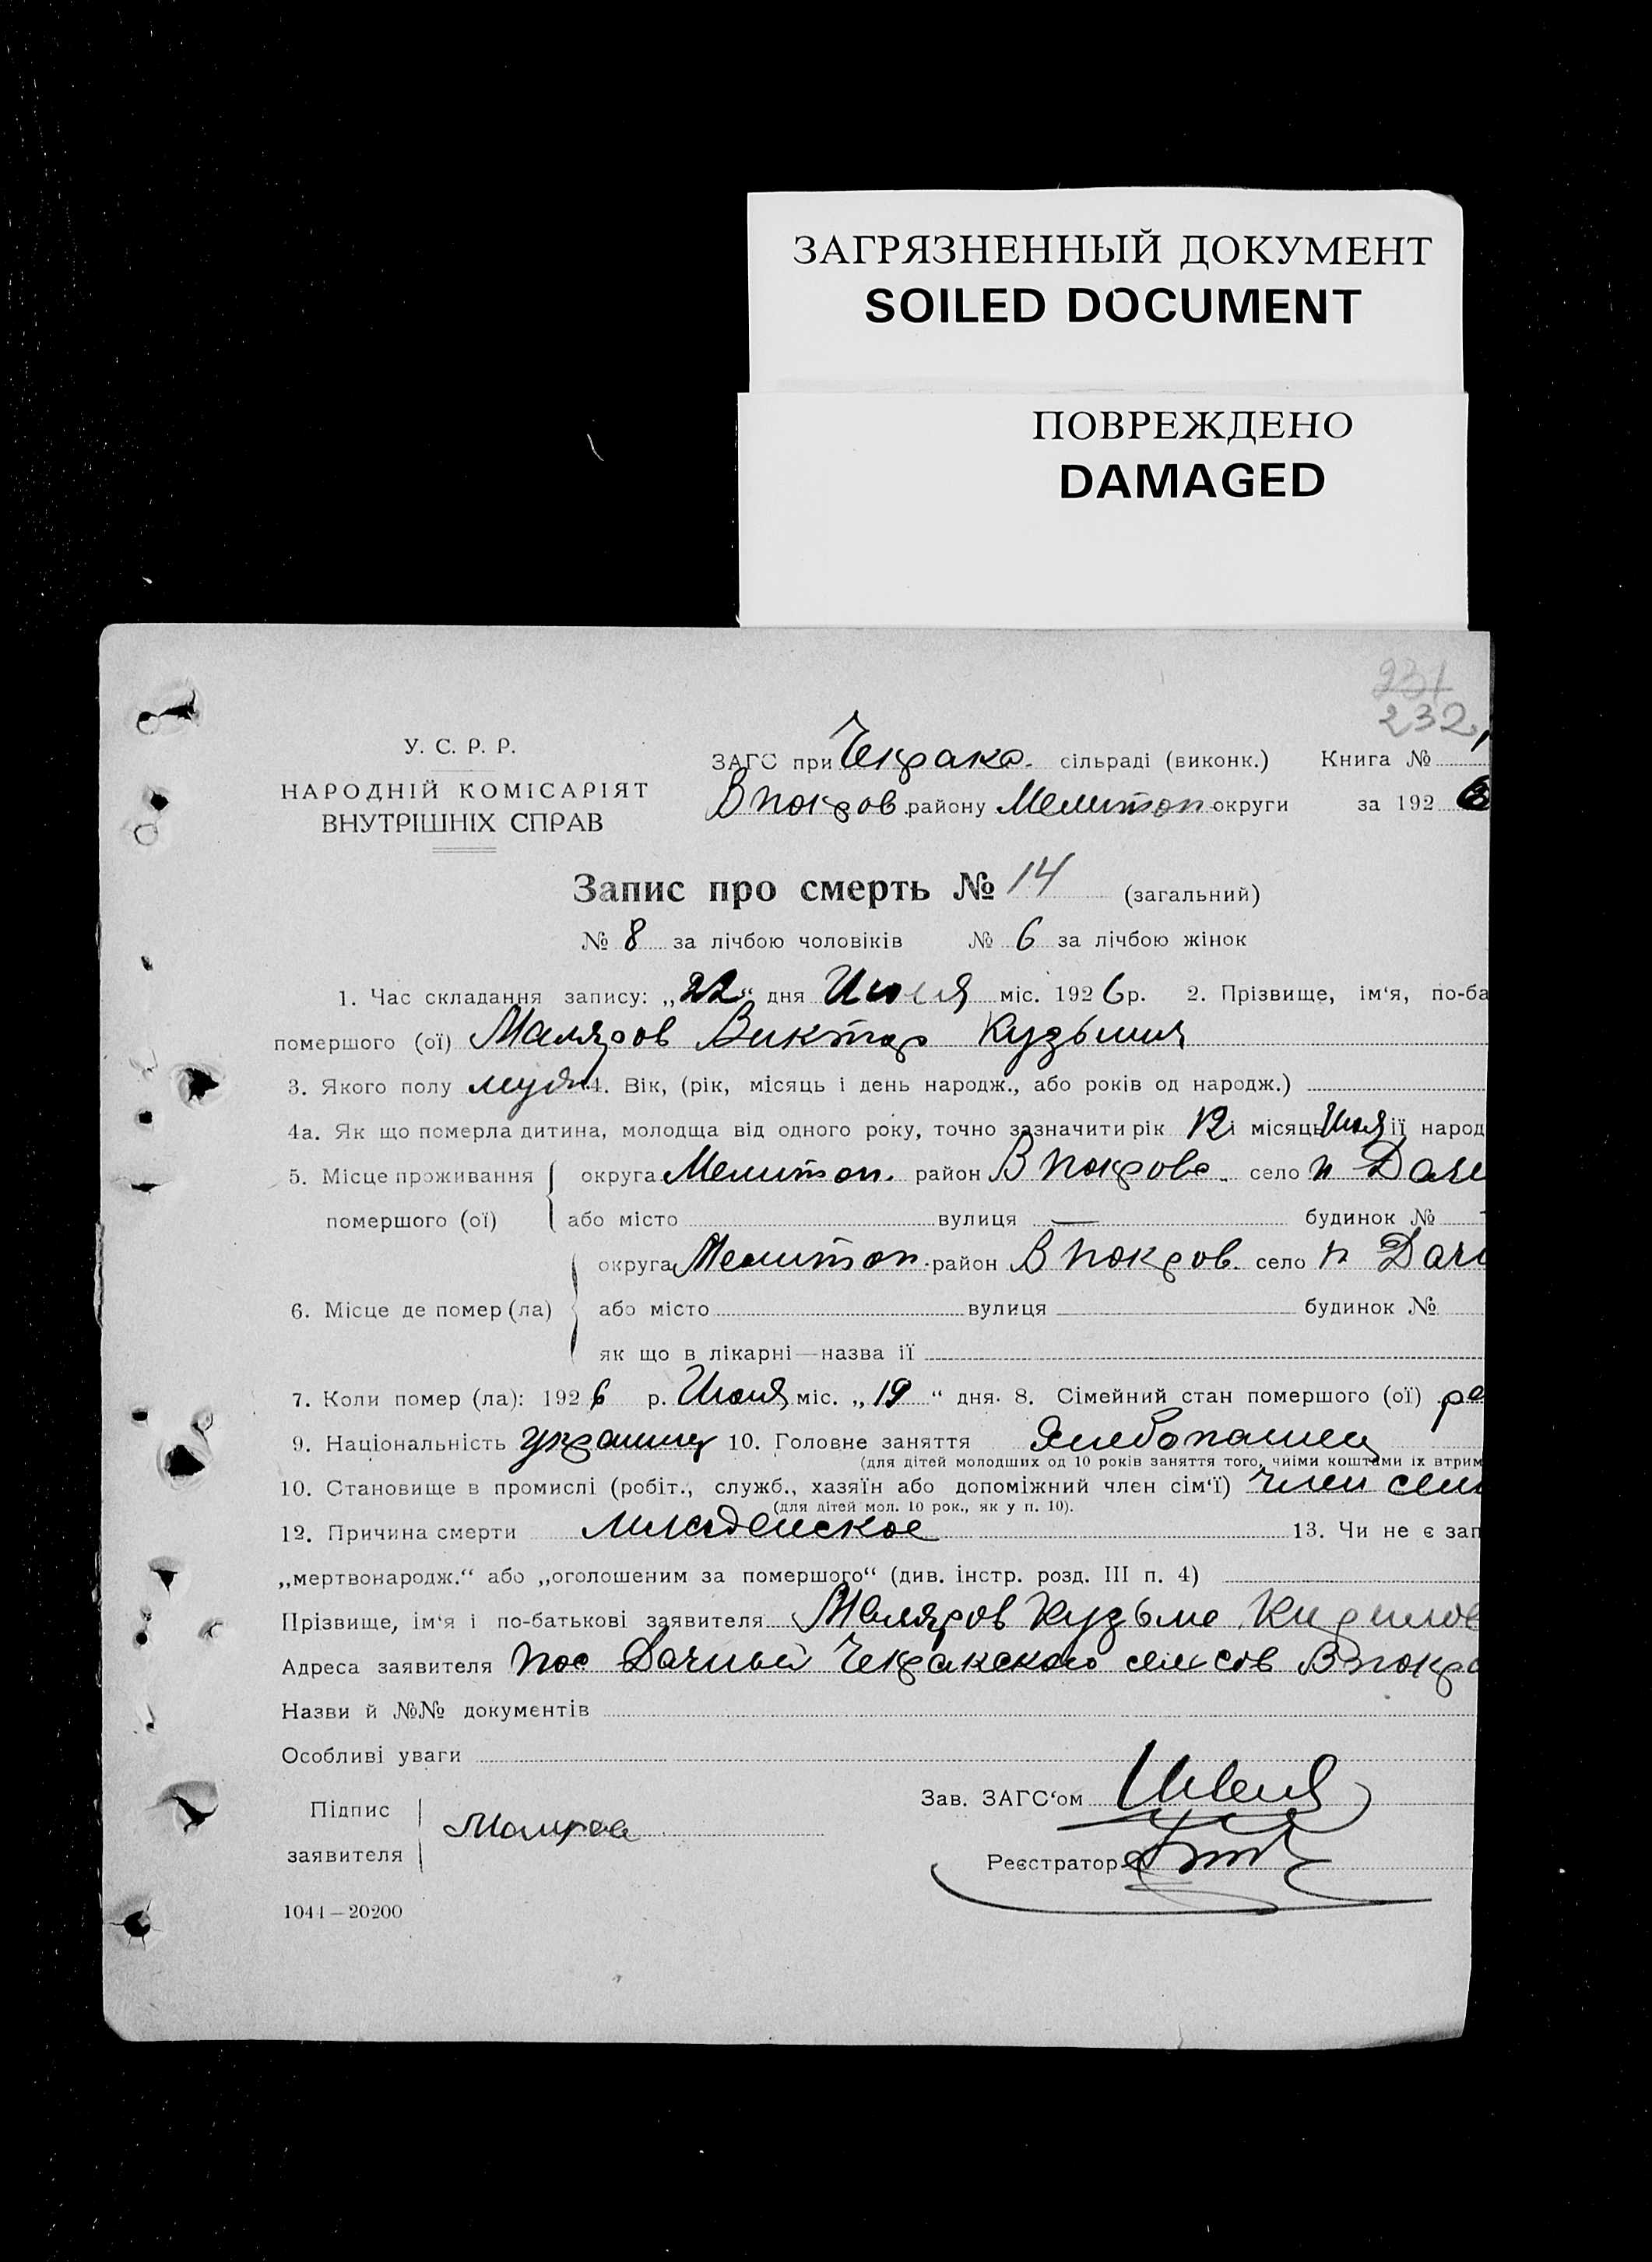 ЗАГРЯЗНЕННЫЙ ДОКУМЕНТ
SOILED DOCUMENT
ПОВРЕЖДЕНО
DAMAGED
231
232
У. С. Р. Р.
НАРОДНІЙ КОМІСАРІЯТ
ВНУТРІШНІХ СПРАВ
ЗАГС при Чекрак. сільраді (виконк.) Книга №
В покров району Мелитоп округи за 192 6
Запис про смерть № 14 (загальний)
№ 8 за лічбою чоловіків № 6 за лічбою жінок
1. Час складання запису: „22“ дня Июля міс. 1926 р. 2. Прізвище, ім‘я, по-ба
помершого (ої) Маляров Виктор Кузьмич
3. Якого полу муж 4. Вік, (рік, місяць і день народж., або років од народж.)
4а. Як що померла дитина, молодща від одного року, точно зазначити рік 12 і місяць Июля її народ
5. Місце проживання округа Мелитоп. район В покров. село п Дачн
помершого (ої) або місто вулиця — будинок №
округа Мелитоп. район В покров. село п Дачн
6. Місце де помер (ла) або місто вулиця будинок №
як що в лікарні — назва ії
7. Коли помер (ла): 1926 р. Июля міс. „19“ дня. 8. Сімейний стан помершого (ої) ре
9. Національність украинец 10. Головне заняття Хлебопашец
(для дітей молодших од 10 років заняття того, чиїми коштами їх втрим
10. Становище в промислі (робіт., служб., хазяїн або допоміжний член сім‘ї) член семи
(для дітей мол. 10 рок., як у п. 10).
12. Причина смерти младенское 13. Чи не є зап
„мертвонародж.“ або „оголошеним за помершого“ (див. інстр. розд. III п. 4)
Прізвище, ім‘я і по-батькові заявителя Маляров Кузьма Кирилов
Адреса заявителя пос Дачный Чекракского сельсов Впокро
Назви й №№ документів
Особливі уваги
Зав. ЗАГС‘ом
Підпис
заявителя
Реєстратор
1044—20200